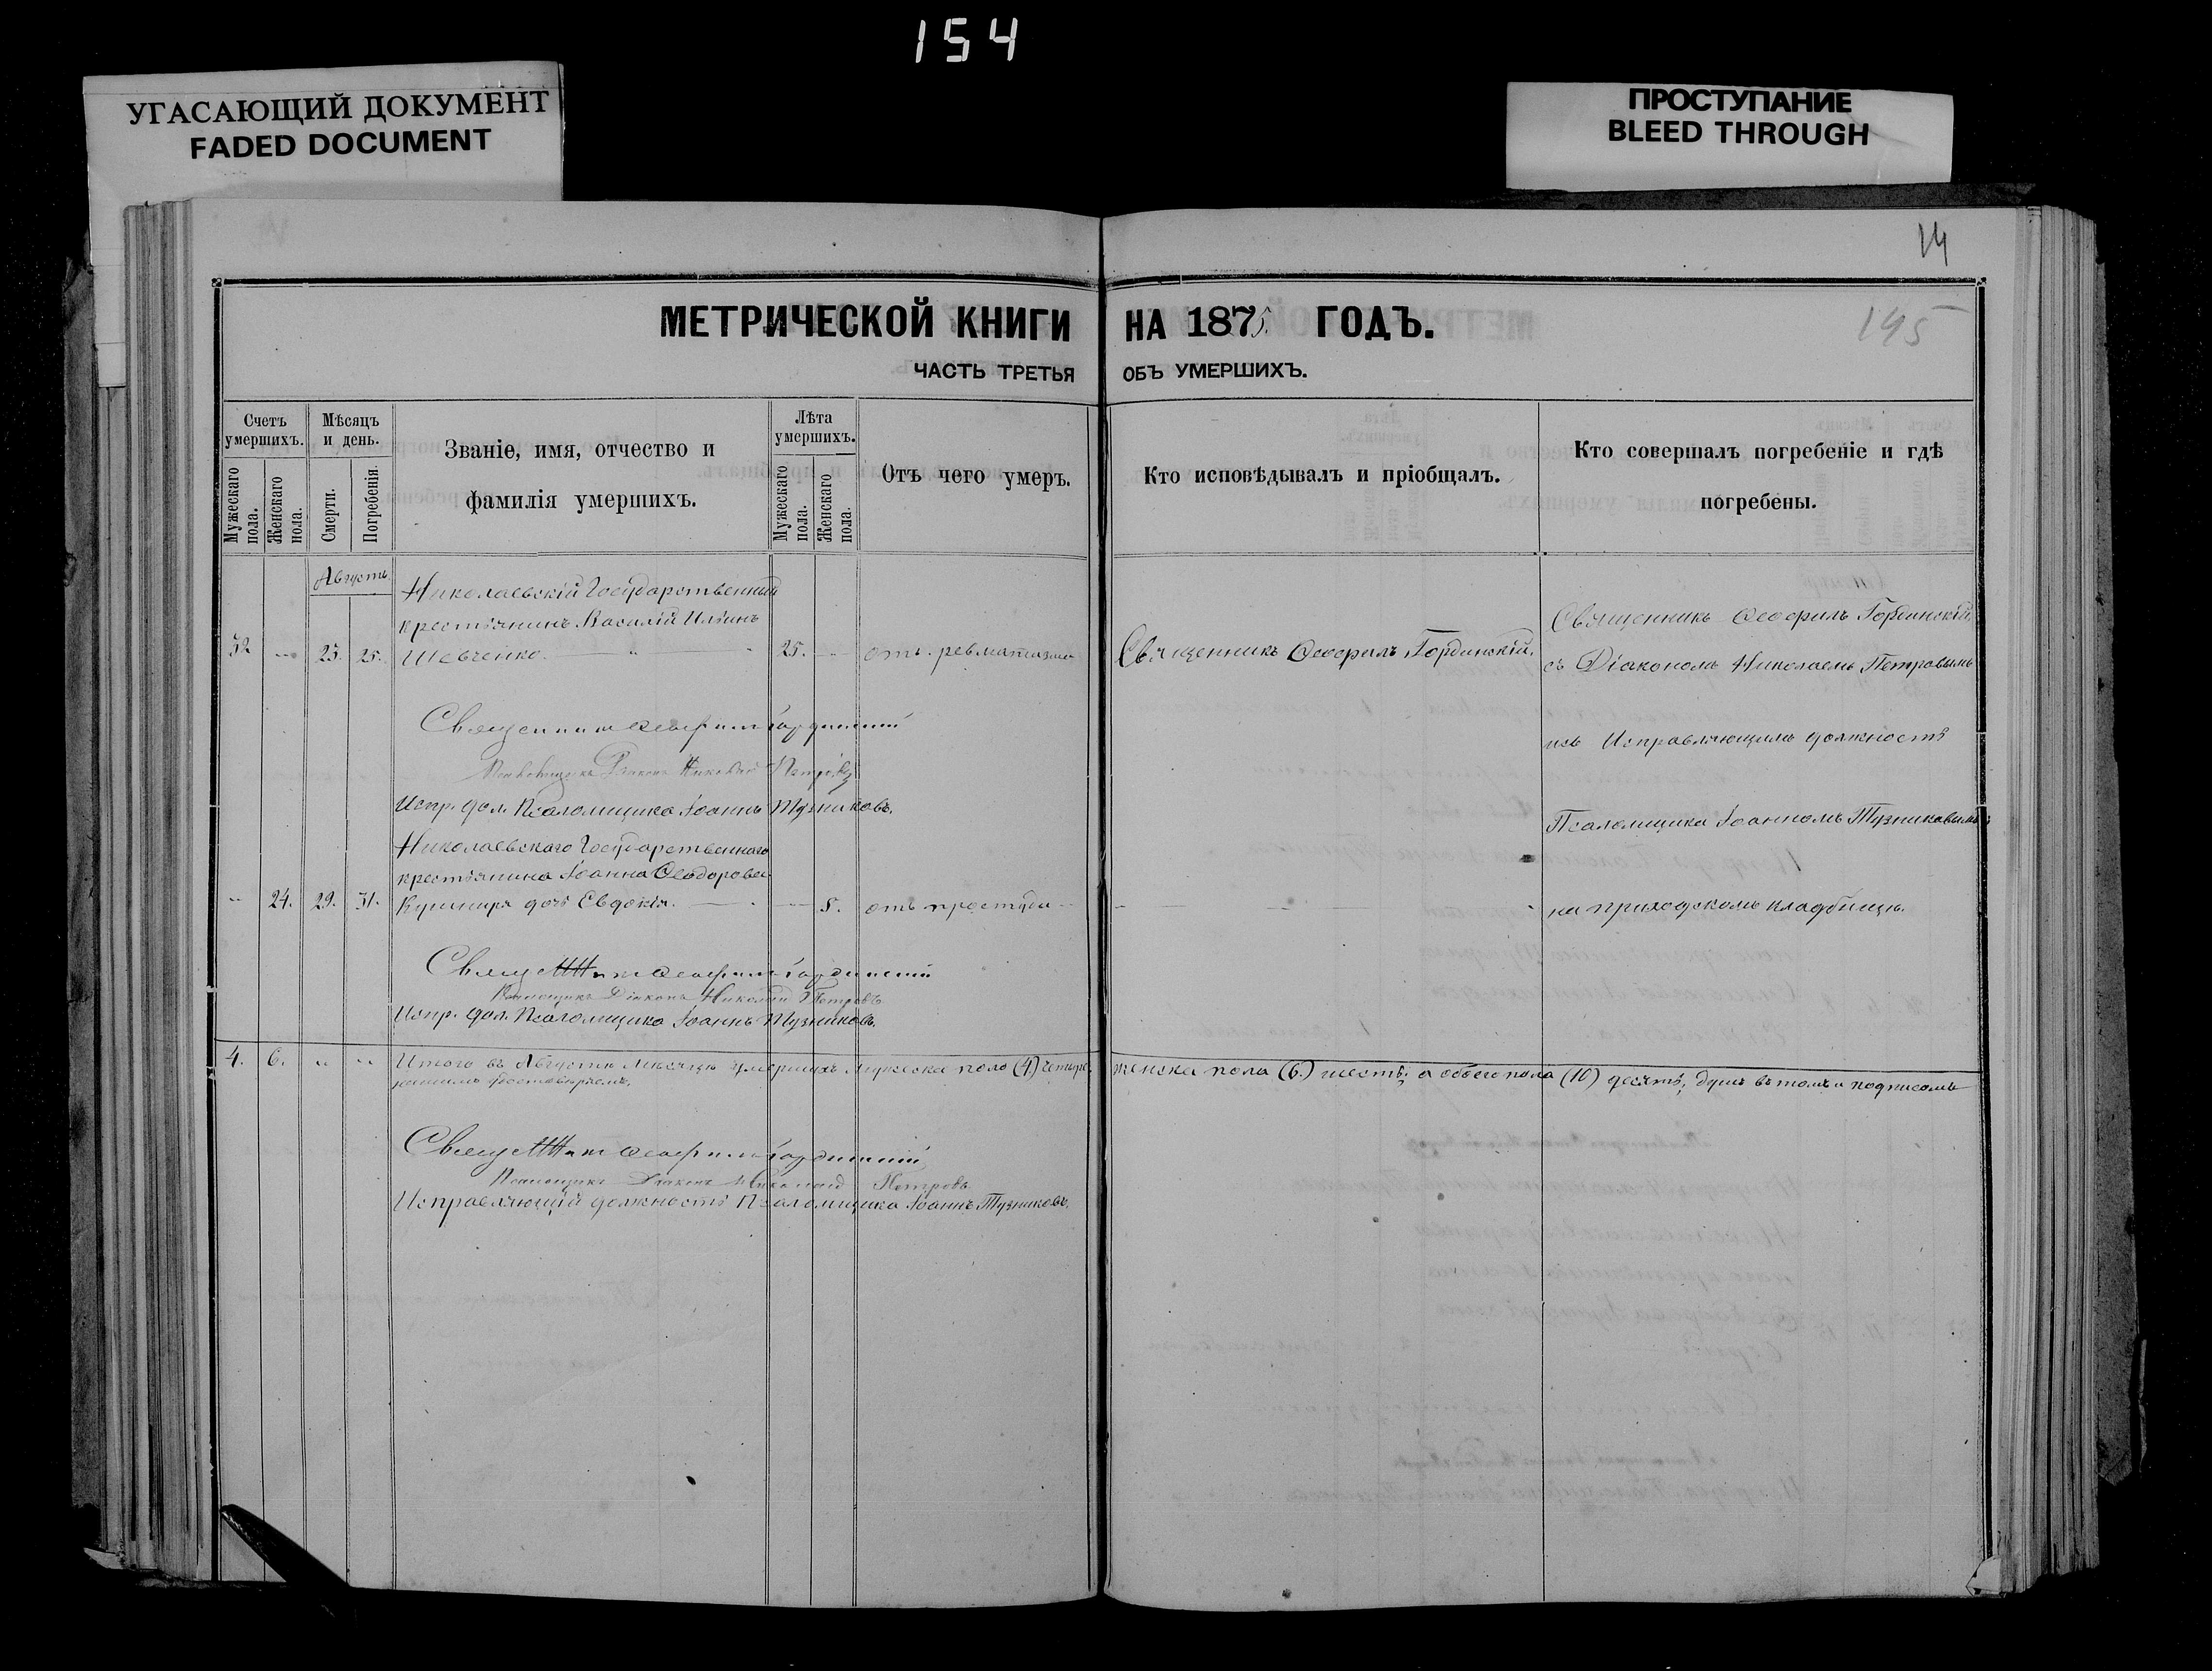 154
УГАСАЮЩИЙ ДОКУМЕНТ
FADED DOCUMENT
ПРОСТУПАНИЕ
BLEED THROUGH
14
195
МЕТРИЧЕСКОЙ КНИГИ НА 1875 ГОДЪ.
ЧАСТЬ ТРЕТЬЯ ОБЪ УМЕРШИХЪ.
Счетъ умершихъ.
Мужескаго пола.
Женскаго пола.
Мѣсяцъ и день.
Смерти.
Погребенія.
Званіе, имя, отчество и
фамилія умершихъ.
Лѣта умершихъ.
Мужескаго пола.
Женскаго пола.
Отъ чего умеръ.
Кто исповѣдывалъ и пріобщалъ.
Кто совершалъ погребеніе и гдѣ
погребены.
Августъ
Николаевскій Государственный
крестьянинъ Василій Ильинъ
32 23. 25. Шевченко. 25. отъ ревматизма
Священникъ Ѳеофилъ Гординскій.
Священникъ Ѳеофилъ Гординскій,
съ Діакономъ Николаемъ Петровымъ
и съ Исправляющимъ должность
Псаломщика Іоанномъ Тузниковымъ
на приходскомъ кладбищѣ.
Священникъ Ѳеофилъ Гординскій
Діаконъ Николай Петровъ
Испр. дол. Псаломщика Іоаннъ Тузниковъ.
Николаевскаго Государственнаго
крестьянина Іоанна Ѳеодорова
24. 29. 31. Кушнира дочь Евдокія. 8. отъ простуды
Ѳеофилъ Гординскій
Діаконъ Николай Петровъ
Испр. дол. Псаломщика Іоаннъ Тузниковъ.
4. 6. Итого въ Августѣ мѣсяцѣ умершихъ мужеска пола (4) четыре, женска пола (6.) шесть, а обоего пола (10) десять, душъ въ томъ и подписомъ
Ѳеофилъ Гординскій
Діаконъ Николай Петровъ
Исправляющій должность Псаломщика Іоаннъ Тузниковъ.